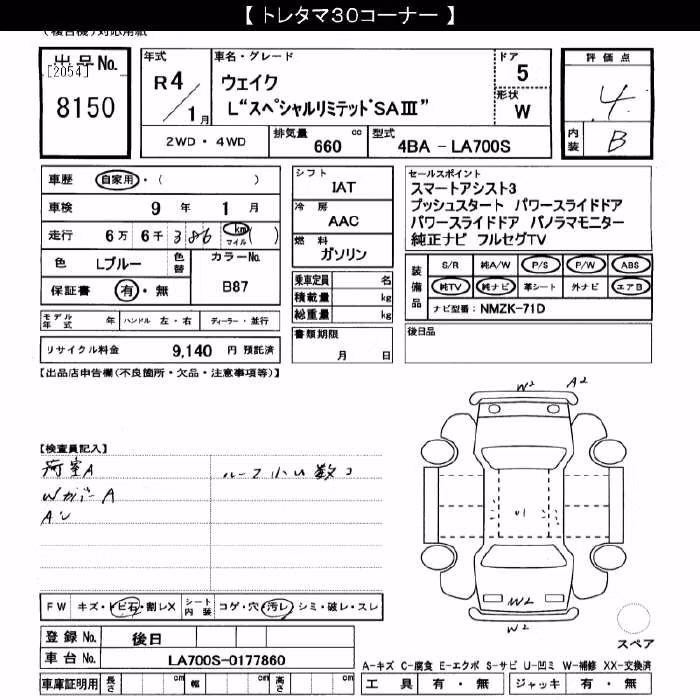 【 トレタマ30コーナー 】
(複合機)対応用紙
出品No.
[2054]
8150
年式
R4/1月
車名・グレード
ウェイク
L"スペシャルリミテッドSAⅢ"
ドア
5
形状
W
2WD・4WD
排気量 660 cc
型式 4BA - LA700S
評価点
4
内装 B
車歴 自家用・( )
車検 9年 1月
走行 6万 6千 386 km マイル ( )
色 Lブルー 色替
カラーNo. B87
保証書 有・無
モデル年式 年 ハンドル 左・右 ディーラー・並行
リサイクル料金 9,140 円 預託済
シフト
IAT
冷房
AAC
燃料
ガソリン
乗車定員 名
積載量 kg
総重量 kg
書類期限
月 日
セールスポイント
スマートアシスト3
プッシュスタート パワースライドドア
パワースライドドア パノラマモニター
純正ナビ フルセグTV
装備品
S/R 純A/W P/S P/W ABS
純TV 純ナビ 革シート 外ナビ エアB
ナビ型番: NMZK-71D
後日品
【出品店申告欄(不良箇所・欠品・注意事項等)】
【検査員記入】
荷室A
ルーフ小凹数コ
Wカバー A
W2
A2
U1
W2
W2
FW キズ・トビ石・割レX
シート内装 コゲ・穴・汚レ・シミ・破レ・スレ
登録No. 後日
車台No. LA700S-0177860
車庫証明用 長さ cm 幅 cm 高さ cm
スペア
A-キズ C-腐食 E-エクボ S-サビ U-凹ミ W-補修 XX-交換済
工具 有・無 ジャッキ 有・無